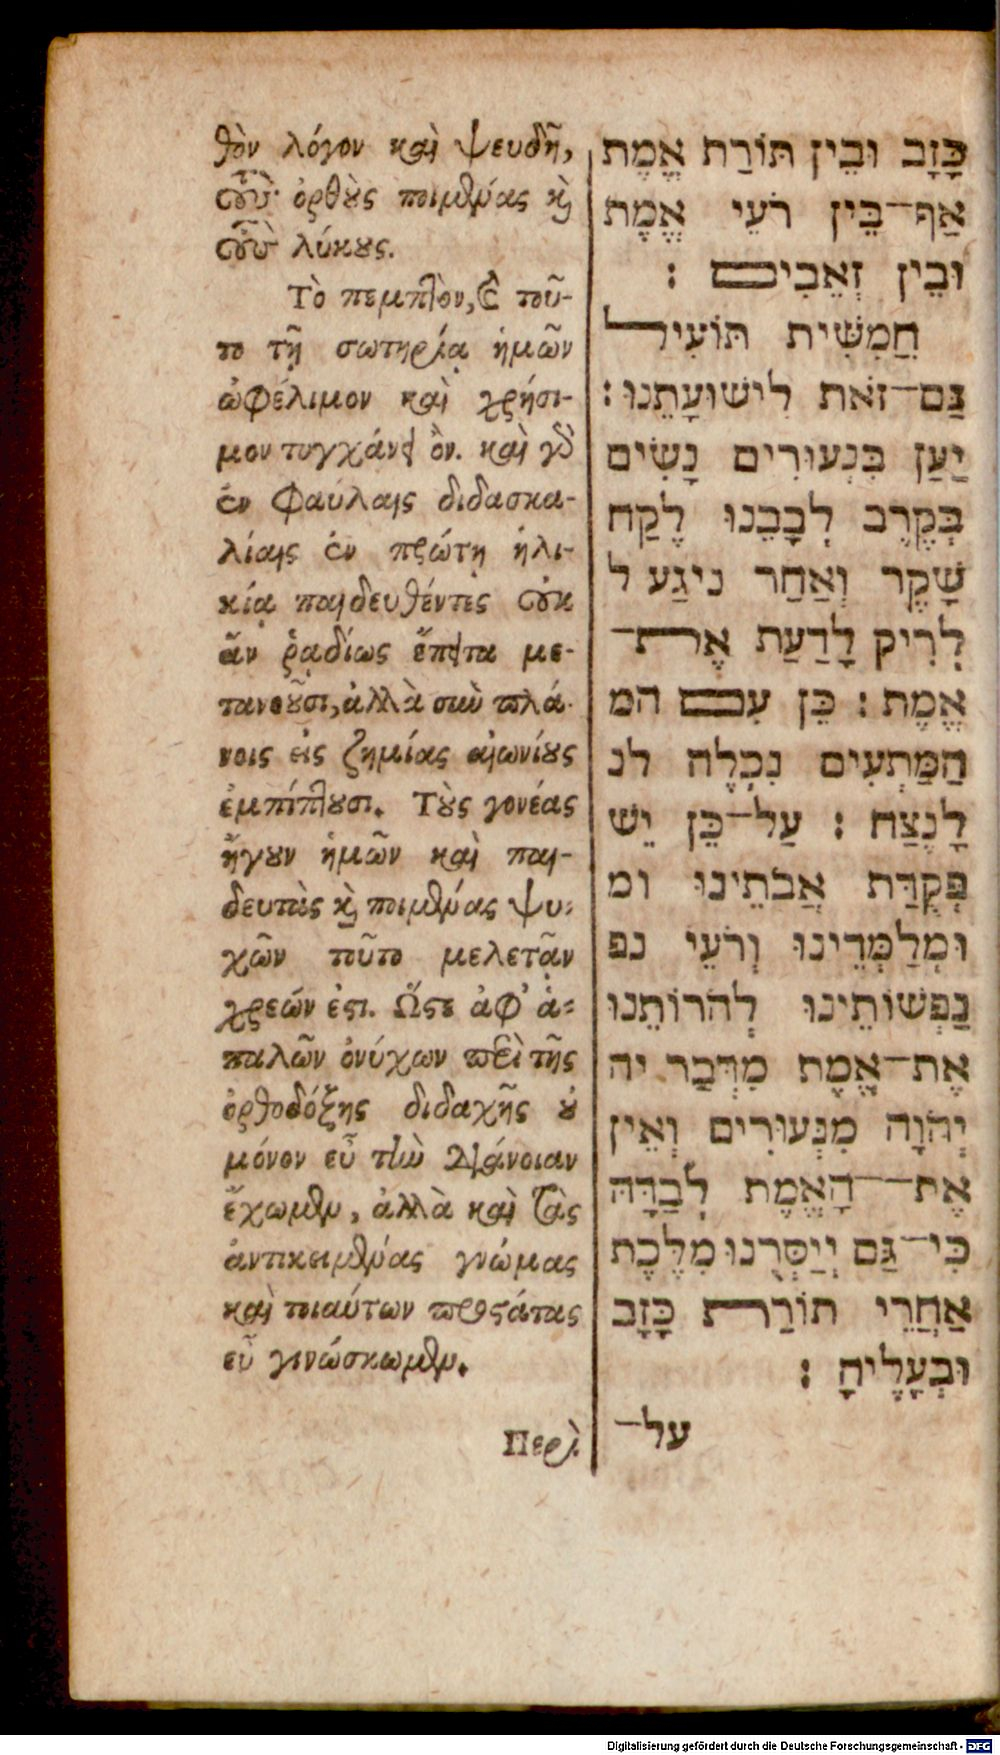 θὸν λόγον καὶ ψευδῆ,
τοὺς ὀρθοὺς ποιμένας κὶ
τοὺς λύκους.
Τὸ πεμπτὸν, ἐ τοῦ-
το τῇ σωτηρίᾳ ἡμῶν
ὠφέλιμον καὶ χρήσι-
μον τυγχάνει ὂν. καὶ γὸ
ἐν φαύλαις διδασκα-
λίαις ἐν πρώτῃ ἡλι-
κίᾳ παιδευθέντες οὐκ
ἂν ῥᾳδίως ἔπειτα με-
τανοοῦσι, ἀλλὰ σὺν πλά-
νοις εἰς ζημίας αἰωνίους
ἐμπίπτουσι. Τοὺς γονέας
ἤγουν ἡμῶν καὶ παι-
δευτὰς κὶ ποιμένας ψυ-
χῶν τοῦτο μελετᾷν
χρεών ἐστι. Ὥστε ἀφ᾽ ἁ-
παλῶν ὀνύχων περὶ τῆς
ὀρθοδόξης διδαχῆς οὐ
μόνον εὖ τὴν διάνοιαν
ἔχωμεν, ἀλλὰ καὶ τὰς
ἀντικειμένας γνώμας
καὶ τοιαύτων προστάτας
εὖ γινώσκωμεν.
Περὶ
כָּזָב וּבֵין תּוֹרַת אֱמֶת
אַף־בֵּין רֹעֵי אֱמֶת
וּבֵין זְאֵבִים :
חֲמִשִּׁית תּוֹעִיל
גַּם־זֹאת לִישׁוּעָתֵנוּ :
יַעַן בִּנְעוּרִים נָשִׂים
בְּקֶרֶב לְבָבֵנוּ לֶקַח
שָׁקֶר וְאַחַר נִיגַע ל
לְרִיק לָדַעַת אֶת־
אֱמֶת : כֵּן עִם המ
הַמַּתְעִים נִכְלֶה לנ
לָנֶצַח : עַל־כֵּן יֵשׁ
פְּקֻדַּת אֲבֹתֵינוּ ומ
וּמְלַמְּדֵינוּ וְרֹעֵי נפ
נַפְשׁוֹתֵינוּ לְהֹרוֹתֵנוּ
אֶת־אֱמֶת מִדְּבַר יה
יְהֹוָה מִנְּעוּרִים וְאֵין
אֶת־־הָאֱמֶת לְבַדָּהּ
כִּי־גַּם יְיַסְּרֻנוּ מִלֶּכֶת
אַחֲרֵי תוֹרַת כָּזָב
וּבְעָלֶיהָ :
על־